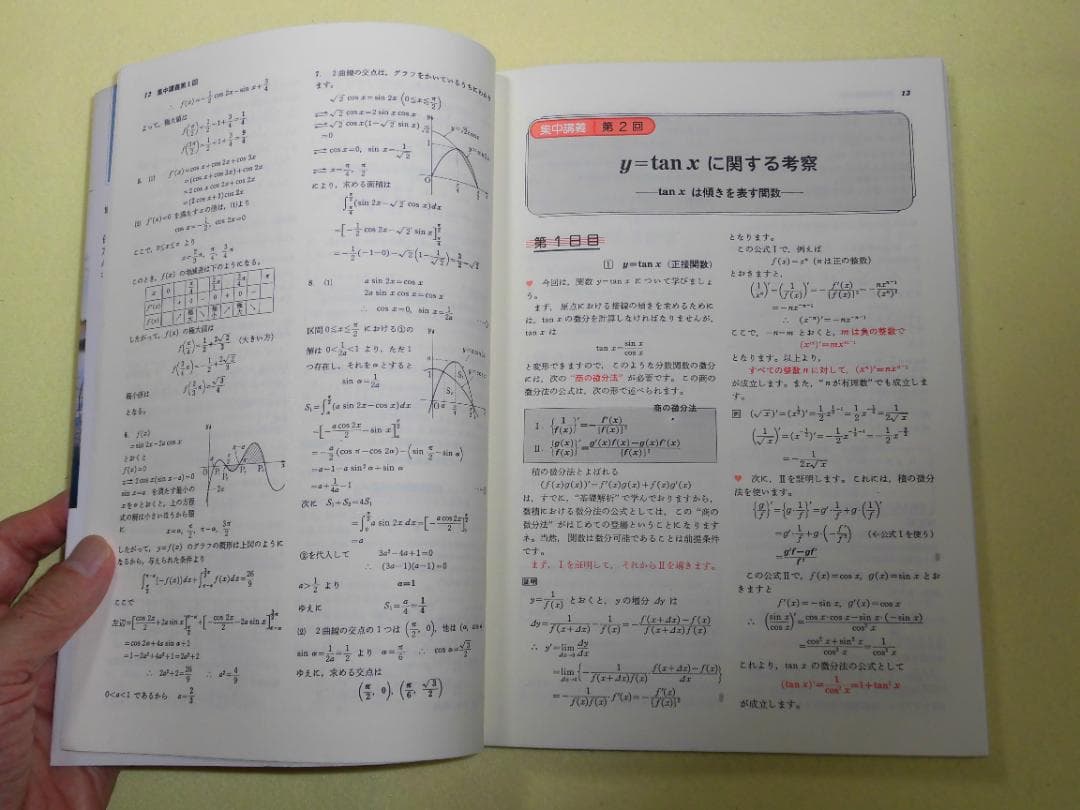 12 集中講義第1回
∴ f(x)=-1/2 cos 2x-sin x+3/4
よって，極大値は
8. (1) f'(x)=cos x+cos 2x+cos 3x
=(cos x+cos 3x)+cos 2x
=2 cos x cos 2x+cos 2x
=(2 cos x+1)cos 2x
(2) f'(x)=0 を満たす x の値は，(1)より
cos x=-1/2, cos 2x=0
ここで，0≤x≤π より
このとき，f(x) の増減表は下のようになる。
したがって，f(x) の極大値は
(大きい方)
極小値は
となる。
6. f(x)
=sin 2x-2a cos x
とおくと
f(x)=0
⇄ 2 cos x(sin x-a)=0
sin x=a を満たす最小の
x を α とおくと，上の方程
式の解は小さいほうから順
に
x=α, π/2, π-α, 3π/2
したがって，y=f(x) のグラフの概形は上図のように
なるから，与えられた条件より
ここで
=cos 2α+4a sin α+1
=1-2a²+4a²+1=2a²+2
∴ 2a²+2=26/9 ∴ a²=4/9
0<a<1 であるから a=2/3
7. 2曲線の交点は，グラフをかいているうちにわかり
ます。
√2 cos x=sin 2x (0≤x≤π/2)
⇄ √2 cos x=2 sin x cos x
⇄ √2 cos x(1-√2 sin x)
=0
⇄ cos x=0, sin x=1/√2
⇄ x=π/4, π/2
により，求める面積は
∫[π/4→π/2](sin 2x-√2 cos x)dx
=[-1/2 cos 2x-√2 sin x][π/4→π/2]
=-1/2(-1-0)-√2(1-1/√2)=3/2-√2
8. (1) a sin 2x=cos x
2a sin x cos x=cos x
∴ cos x=0, sin x=1/2a
区間 0≤x≤π/2 における①の
解は 0<1/2a<1 より，ただ1
つ存在し，それを α とすると
sin α=1/2a
S₁=∫[α→π/2](a sin 2x-cos x)dx
=[-a cos 2x/2-sin x][α→π/2]
=-a/2(cos π-cos 2α)-(sin π/2-sin α)
=a-1-a sin² α+sin α
=a+1/4a-1
次に S₁+S₂=4S₁
=∫[0→π/2]a sin 2x dx=[-a cos 2x/2][0→π/2]
=a
③を代入して 3a²-4a+1=0
∴ (3a-1)(a-1)=0
a>1/2 より a=1
ゆえに S₁=a/4=1/4
(2) 2曲線の交点の1つは (π/2, 0)，他は (α, cos
sin α=1/2a=1/2 より α=π/6 ∴ cos α=√3/2
ゆえに，求める交点は
(π/2, 0), (π/6, √3/2)
13
集中講義 第2回
y=tan x に関する考察
——tan x は傾きを表す関数——
第1日目
1 y=tan x (正接関数)
♥ 今回は，関数 y=tan x について学びましょ
う。
まず，原点における接線の傾きを求めるために
は，tan x の微分を計算しなければなりませんが，
tan x は
tan x=sin x/cos x
と変形できますので，このような分数関数の微分
には，次の“商の微分法”が必要です。この商の
微分法の公式は，次の形で述べられます。
商の微分法
Ⅰ. {1/f(x)}'=-f'(x)/{f(x)}²
Ⅱ. {g(x)/f(x)}'=g'(x)f(x)-g(x)f'(x)/{f(x)}²
積の微分法とよばれる
(f(x)g(x))'=f'(x)g(x)+f(x)g'(x)
は，すでに，“基礎解析”で学んでおりますから，
数積における微分法の公式としては，この“商の
微分法”がはじめての登場ということになります
ネ。当然，関数は微分可能であることは前提条件
です。
まず，Ⅰを証明して，それからⅡを導きます。
証明
y=1/f(x) とおくと，y の増分 Δy は
Δy=1/f(x+Δx)-1/f(x)=-f(x+Δx)-f(x)/f(x+Δx)f(x)
∴ y'=lim[Δx→0] Δy/Δx
=lim[Δx→0]{-1/f(x+Δx)f(x)・f(x+Δx)-f(x)/Δx}
=-1/f(x)f(x)・f'(x)=-f'(x)/{f(x)}²
となります。
この公式Ⅰで，例えば
f(x)=xⁿ (n は正の整数)
とおきますと，
(1/xⁿ)'=(1/f(x))'=-f'(x)/{f(x)}²=-nxⁿ⁻¹/(xⁿ)²
=-nx⁻ⁿ⁻¹
∴ (x⁻ⁿ)'=-nx⁻ⁿ⁻¹
ここで，-n=m とおくと，m は負の整数で
(xᵐ)'=mxᵐ⁻¹
となります。以上より，
すべての整数 n に対して，(xⁿ)'=nxⁿ⁻¹
が成立します。また，“n が有理数”でも成立しま
す。
例 (√x)'=(x^1/2)'=1/2 x^1/2-1=1/2 x^-1/2=1/2√x
(1/√x)'=(x^-1/2)'=-1/2 x^-1/2-1=-1/2 x^-3/2
=-1/2x√x
♥ 次に，Ⅱを証明します。これには，積の微分
法を使います。
{g/f}'={g・1/f}'=g'・1/f+g・(1/f)'
=g'・1/f+g・(-f'/f²) (←公式Ⅰを使う)
=g'f-gf'/f²
この公式Ⅱで，f(x)=cos x, g(x)=sin x とお
きますと
f'(x)=-sin x, g'(x)=cos x
∴ (sin x/cos x)'=cos x・cos x-sin x・(-sin x)/cos² x
=cos² x+sin² x/cos² x=1/cos² x
これより，tan x の微分法の公式として
(tan x)'=1/cos² x=1+tan² x
が成立します。